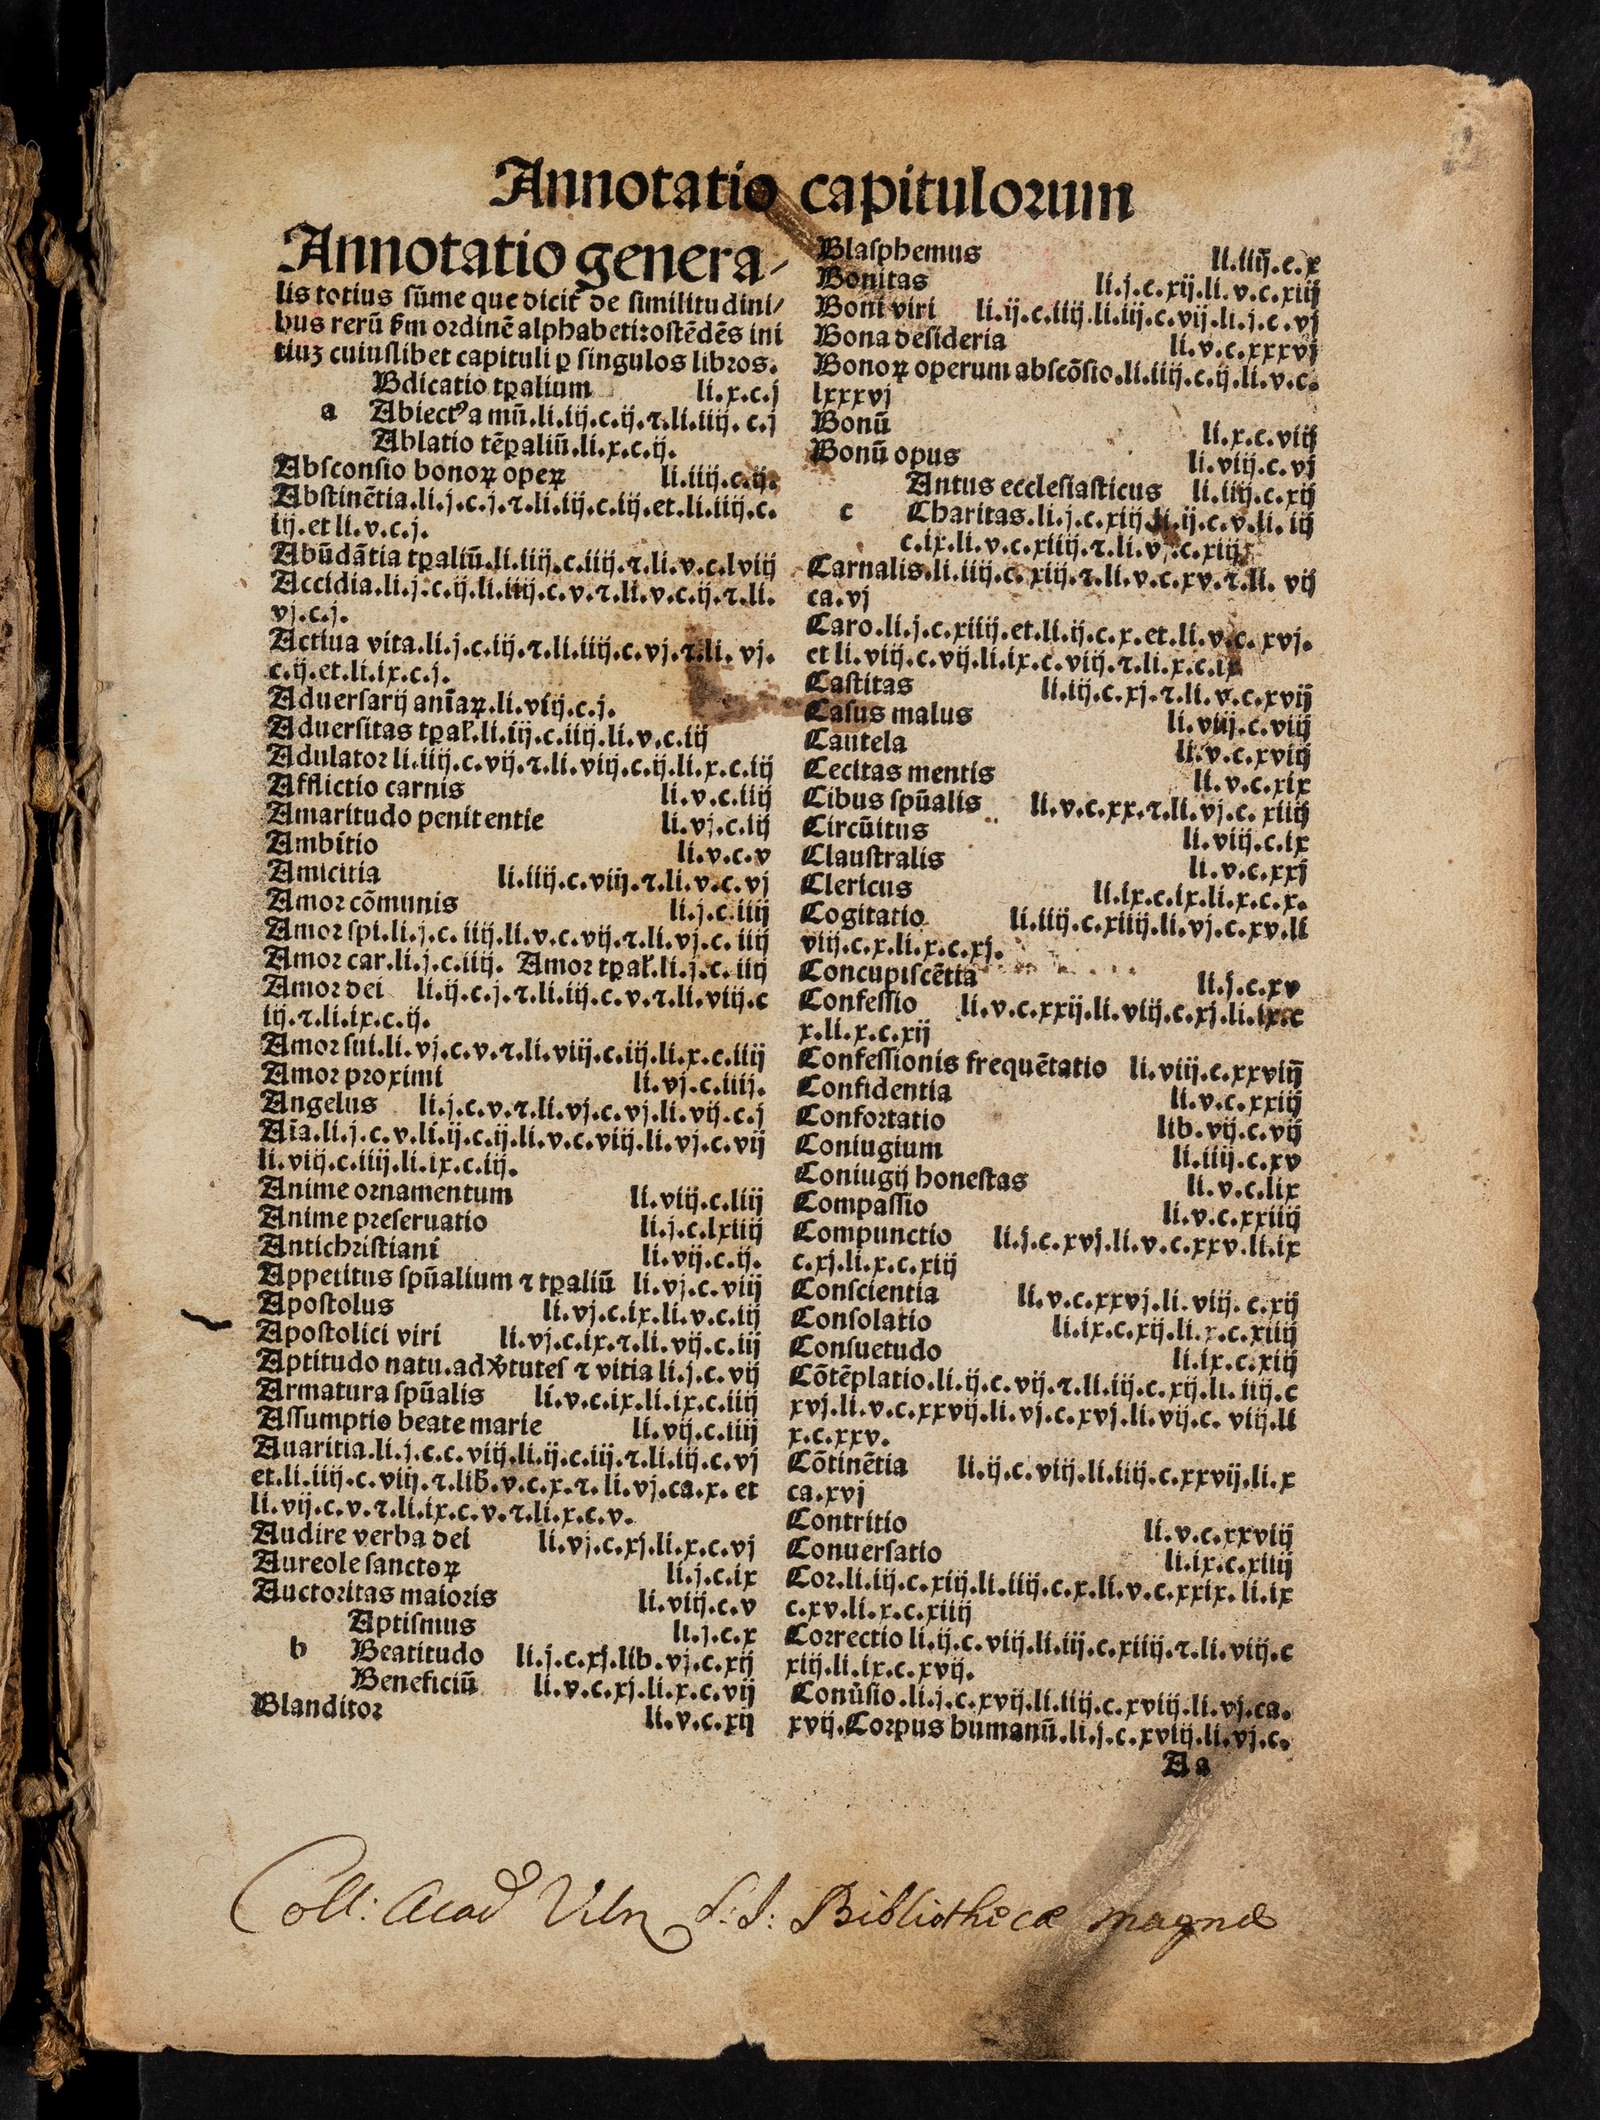 Annotatio capitulorum
Annotatio genera⸗
lis totius sūme que dicit̃ de similitudini⸗
bus rerū ẜm ordinē alphabeti:ostēdēs ini
tiuꝫ cuiuslibet capituli ꝑ singulos libros.
Bdicatio tꝑalium li.x.c.j
a Abiectꝰa mū.li.iij.c.ij.⁊.li.iiij.c.j
Ablatio tēꝑaliū.li.x.c.ij.
Absconsio bonoꝝ opeꝝ li.iiij.c.ij.
Abstinētia.li.j.c.j.⁊.li.iij.c.iij.et.li.iiij.c.
iij.et li.v.c.j.
Abūdātia tꝑaliū.li.iiij.c.iiij.⁊.li.v.c.lviij
Accidia.li.j.c.ij.li.iiij.c.v.⁊.li.v.c.ij.⁊.li.
vj.c.j.
Actiua vita.li.j.c.iij.⁊.li.iiij.c.vj.⁊.li.vj.
c.ij.et.li.ix.c.j.
Aduersarij anīaꝝ.li.viij.c.j.
Aduersitas tꝑal̃.li.iij.c.iiij.li.v.c.iij
Adulator li.iiij.c.vij.⁊.li.viij.c.ij.li.x.c.iij
Afflictio carnis li.v.c.iiij
Amaritudo penitentie li.vj.c.iij
Ambitio li.v.c.v
Amicitia li.iiij.c.viij.⁊.li.v.c.vj
Amor cōmunis li.j.c.iiij
Amor spi.li.j.c.iiij.li.v.c.vij.⁊.li.vj.c.iiij
Amor car.li.j.c.iiij. Amor tꝑal̃.li.j.c.iiij
Amor dei li.ij.c.j.⁊.li.iij.c.v.⁊.li.viij.c
iij.⁊.li.ix.c.ij.
Amor sui.li.vj.c.v.⁊.li.viij.c.iij.li.x.c.iiij
Amor proximi li.vj.c.iiij.
Angelus li.j.c.v.⁊.li.vj.c.vj.li.vij.c.j
Aīa.li.j.c.v.li.ij.c.ij.li.v.c.viij.li.vj.c.vij
li.viij.c.iiij.li.ix.c.iij.
Anime ornamentum li.viij.c.liij
Anime preseruatio li.j.c.lxiiij
Antichristiani li.vij.c.ij.
Appetitus spūalium ⁊ tꝑaliū li.vj.c.viij
Apostolus li.vj.c.ix.li.v.c.iij
Apostolici viri li.vj.c.ix.⁊.li.vij.c.iij
Aptitudo natu.ad v̓tutes ⁊ vitia li.j.c.vij
Armatura spūalis li.v.c.ix.li.ix.c.iiij
Assumptio beate marie li.vij.c.iiij
Auaritia.li.j.c.c.viij.li.ij.c.iij.⁊.li.iij.c.vj
et.li.iiij.c.viij.⁊.lib̄.v.c.x.⁊.li.vj.ca.x.et
li.vij.c.v.⁊.li.ix.c.v.⁊.li.x.c.v.
Audire verba dei li.vj.c.xj.li.x.c.vj
Aureole sanctoꝝ li.j.c.ix
Auctoritas maioris li.viij.c.v
Aptismus li.j.c.x
b Beatitudo li.j.c.xj.lib.vj.c.xij
Beneficiū li.v.c.xj.li.x.c.vij
Blanditor li.v.c.xij
Blasphemus li.iiij.c.x
Bonitas li.j.c.xij.li.v.c.xiij
Boni viri li.ij.c.iiij.li.iij.c.vij.li.j.c.vj
Bona desideria li.v.c.xxxvj
Bonoꝝ operum abscōsio.li.iiij.c.ij.li.v.c.
lxxxvj
Bonū li.x.c.viij
Bonū opus li.viij.c.vj
Antus ecclesiasticus li.iiij.c.xij
c Charitas.li.j.c.xiij.li.ij.c.v.li.iij
c.ix.li.v.c.xiiij.⁊.li.vj.c.xiij
Carnalis.li.iiij.c.xiij.⁊.li.v.c.xv.⁊.li.vij
ca.vj
Caro.li.j.c.xiiij.et.li.ij.c.x.et.li.v.c.xvj.
et li.viij.c.vij.li.ix.c.viij.⁊.li.x.c.ix
Castitas li.iij.c.xj.⁊.li.v.c.xvij
Casus malus li.viij.c.viij
Cautela li.v.c.xviij
Cecitas mentis li.v.c.xix
Cibus spūalis li.v.c.xx.⁊.li.vj.c.xiiij
Circūitus li.viij.c.ix
Claustralis li.v.c.xxj
Clericus li.ix.c.ix.li.x.c.x.
Cogitatio li.iiij.c.xiiij.li.vj.c.xv.li
viij.c.x.li.x.c.xj.
Concupiscētia li.j.c.xv
Confessio li.v.c.xxij.li.viij.c.xj.li.ix.c
x.li.x.c.xij
Confessionis frequētatio li.viij.c.xxviij
Confidentia li.v.c.xxiij
Confortatio lib.vij.c.vij
Coniugium li.iiij.c.xv
Coniugij honestas li.v.c.lix
Compassio li.v.c.xxiiij
Compunctio li.j.c.xvj.li.v.c.xxv.li.ix
c.xj.li.x.c.xiij
Conscientia li.v.c.xxvj.li.viij.c.xij
Consolatio li.ix.c.xij.li.x.c.xiiij
Consuetudo li.ix.c.xiij
Cōtēplatio.li.ij.c.vij.⁊.li.iij.c.xij.li.iiij.c
xvj.li.v.c.xxvij.li.vj.c.xvj.li.vij.c.viij.li
x.c.xxv.
Cōtinētia li.ij.c.viij.li.iiij.c.xxvij.li.x
ca.xvj
Contritio li.v.c.xxviij
Conuersatio li.ix.c.xiiij
Cor.li.iij.c.xiij.li.iiij.c.x.li.v.c.xxix.li.ix
c.xv.li.x.c.xiiij
Correctio li.ij.c.viij.li.iij.c.xiiij.⁊.li.viij.c
xiij.li.ix.c.xvij.
Conūsio.li.j.c.xvij.li.iiij.c.xviij.li.vj.ca.
xvij.Corpus humanū.li.j.c.xviij.li.vj.c.
Aa
Coll: Acad Viln S: J: Bibliothecæ magnæ